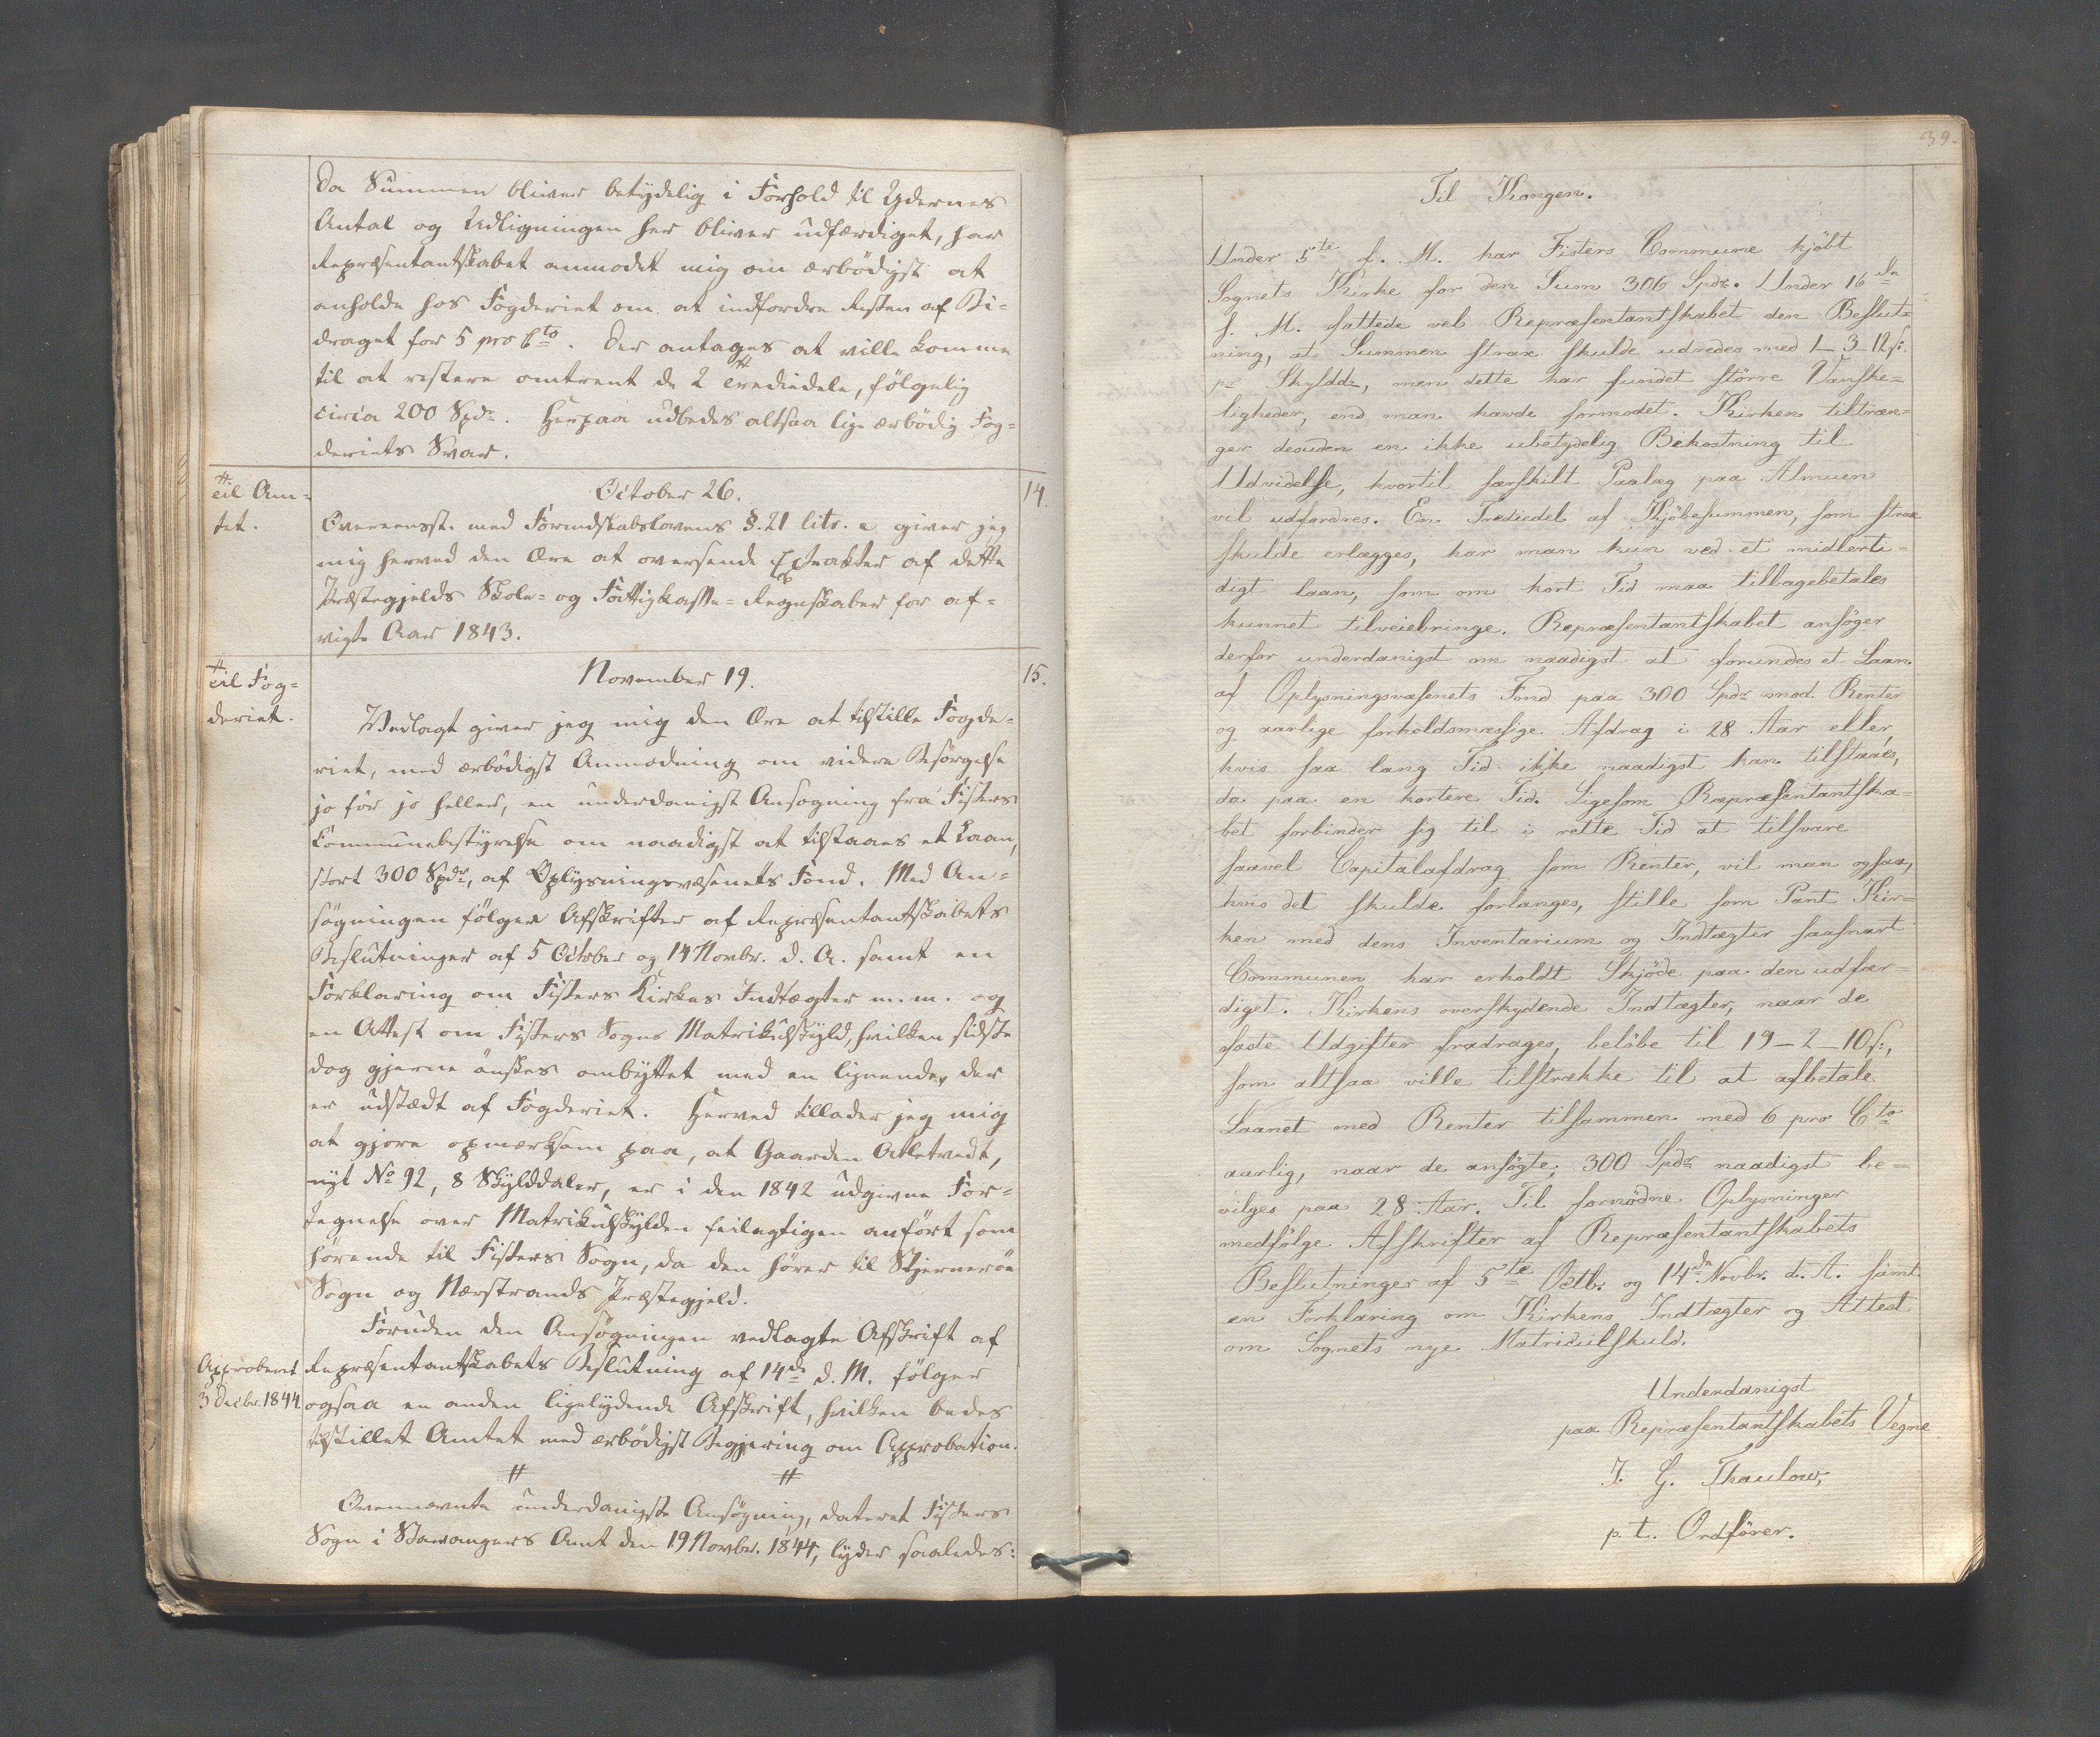 Da Summen bliver betydelig i Forhold til Ydernes
Antal og Udligningen her bliver udfærdiget, har
Repræsentantskabet anmodet mig om ærbödigst at
anholde hos Fogderiet om at indfordre Resten af Bi-
draget for 5 pro Cto. Der antages at ville komme
til at restere omtrent de 2 Trediedele, fölgelig
circa 200 Spdr. Herpaa udbedes altsaa lige ærbödig Fog-
deriets Svar.
Til Am-
tet.
October 26.
14.
Overeensst. med Formdskabslovens §. 21 litr. e giver jeg
mig herved den Ære at oversende Extrakter af dette
Præstegjelds Skole- og Fattigkasse-Regnskaber for af-
vigte Aar 1843.
Til Fog-
deriet.
November 19.
15.
Vedlagt giver jeg mig den Ære at tilstille Fogde-
riet, med ærbödigst Anmodning om videre Besörgelse
jo för jo heller, en underdanigst Ansogning fra Fisters
Communebestyrelse om naadigst at tilstaaes et Laan,
stort 300 Spdr, af Oplysningsvæsenets Fond. Med An-
sögningen fölger Afskrifter af Repræsentantskabets
Beslutninger af 5 October og 14 Novbr. d. A. samt en
Forklaring om Fisters Kirkes Indtægter m. m. og
en Attest om Fisters Sogns Matrikulskyld, hvilken sidste
dog gjerne önskes ombyttet med en lignende, der
er udstædt af Fogderiet. Herved tillader jeg mig
at gjöre opmærksom paa, at Gaarden Atletvedt,
nyt No 92, 8 Skylddaler, er i den 1842 udgivne For-
tegnelse over Matrikulskylden feilagtigen anfört som
hörende til Fisters Sogn, da den hörer til Skjerneröe
Sogn og Nærstrands Præstegjeld.
Foruden den Ansögningen vedlagte Afskrift af
Approberet
3 Decbr. 1844.
Repræsentantskabets Beslutning af 14de d. M. fölger
ogsaa en anden ligelydende Afskrift, hvilken bedes
tilstillet Amtet med ærbödigst Begjering om Approbation.
Ovennævnte underdanigste Ansögning, dateret Fisters
Sogn i Stavangers Amt den 19 Novbr. 1844, lyder saaledes:
39.
Til Kongen.
Under 5te f. M. har Fisters Commune kjöbt
Sognets Kirke for den Sum 306 Spdr. Under 16de
s. M. fattede vel Repræsentantskabet den Beslut-
ning, at Summen strax skulde udredes med 1-3-12 s:
pr Skylddr, men dette har fundet större Vanske-
ligheder, end man havde formodet. Kirken tiltræn-
ger desuden en ikke ubetydelig Bekostning til
Udvidelse, hvortil særskilt Paalæg paa Almuen
vil udfordres. En Trediedel af Kjöbesummen, som strax
skulde erlægges, har man kun ved et midlerti-
digt laan, som om kort Tid maa tilbagebetales
kunnet tilveiebringe. Repræsentantskabet ansöger
derfor underdanigst om naadigst at forundes et Laan
af Oplysningsvæsenets Fond paa 300 Spdr mod Renter
og aarlige forholdsmæssige Afdrag i 28 Aar eller,
hvis saa lang Tid ikke naadigst kan tilstaaes,
da paa en kortere Tid. Ligesom Repræsentantska-
bet forbinder sig til i rette Tid at tilsvare
saavel Capitalafdrag som Renter, vil man ogsaa,
hvis det skulde forlanges, stille som Pant Kir-
ken med dens Inventarium og Indtægter saasnart
Communen har erholdt Skjöde paa den udfær-
diget. Kirkens overskydende Indtægter, naar de
faste Udgifter fradrages, belöbe til 19-2-10 s:,
som altsaa ville tilstrække til at afbetale
Laanet med Renter tilsammen med 6 pro Cto
aarlig, naar de ansögte 300 Spdr naadigst be-
vilges paa 28 Aar. Til fornödne Oplysninger
medfölge Afskrifter af Repræsentantskabets
Beslutninger af 5te Octb. og 14de Novbr. d. A. samt
en Forklaring om Kirkens Indtægter og Attest
om Sognets nye Matriculskuld.
Underdanigst
paa Repræsentantskabets Vegne
J. G. Thaulow,
p. t. Ordförer.